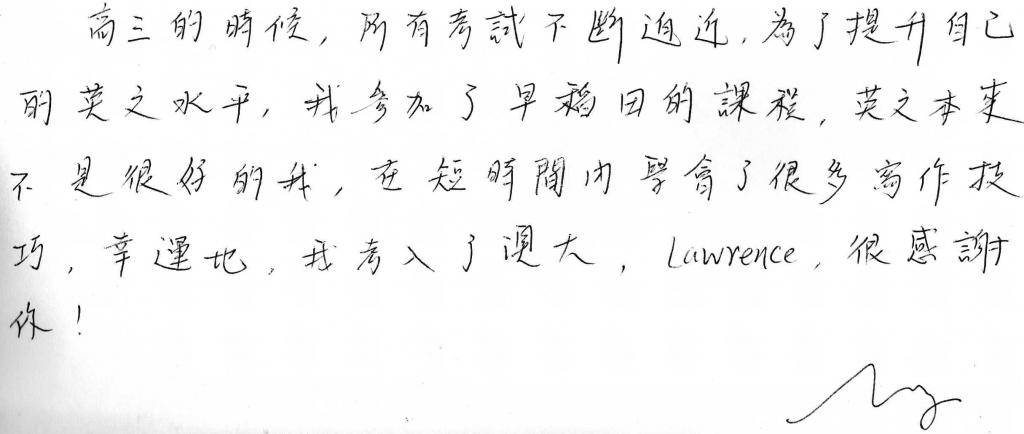 高三的時候，所有考試不斷迫近，為了提升自己
的英文水平，我參加了早稻田的課程，英文本來
不是很好的我，在短時間内學會了很多寫作技
巧，幸運地，我考入了澳大，Lawrence，很感謝
你！